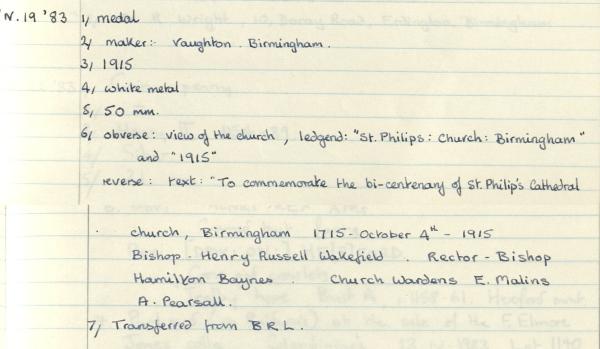 N. 19 '83 1, medal
2, maker:- Vaughton. Birmingham.
3, 1915
4, white metal
5, 50 mm.
6, obverse: view of the church, ledgend: "St. Philips: Church: Birmingham"
and "1915"
reverse: text: "To commemorate the bi-centenary of St. Philip's Cathedral
church, Birmingham 1715 - October 4th - 1915
Bishop - Henry Russell Wakefield. Rector - Bishop
Hamilton Baynes. Church Wardens E. Malins
A. Pearsall.
7, Transferred from B.R.L.